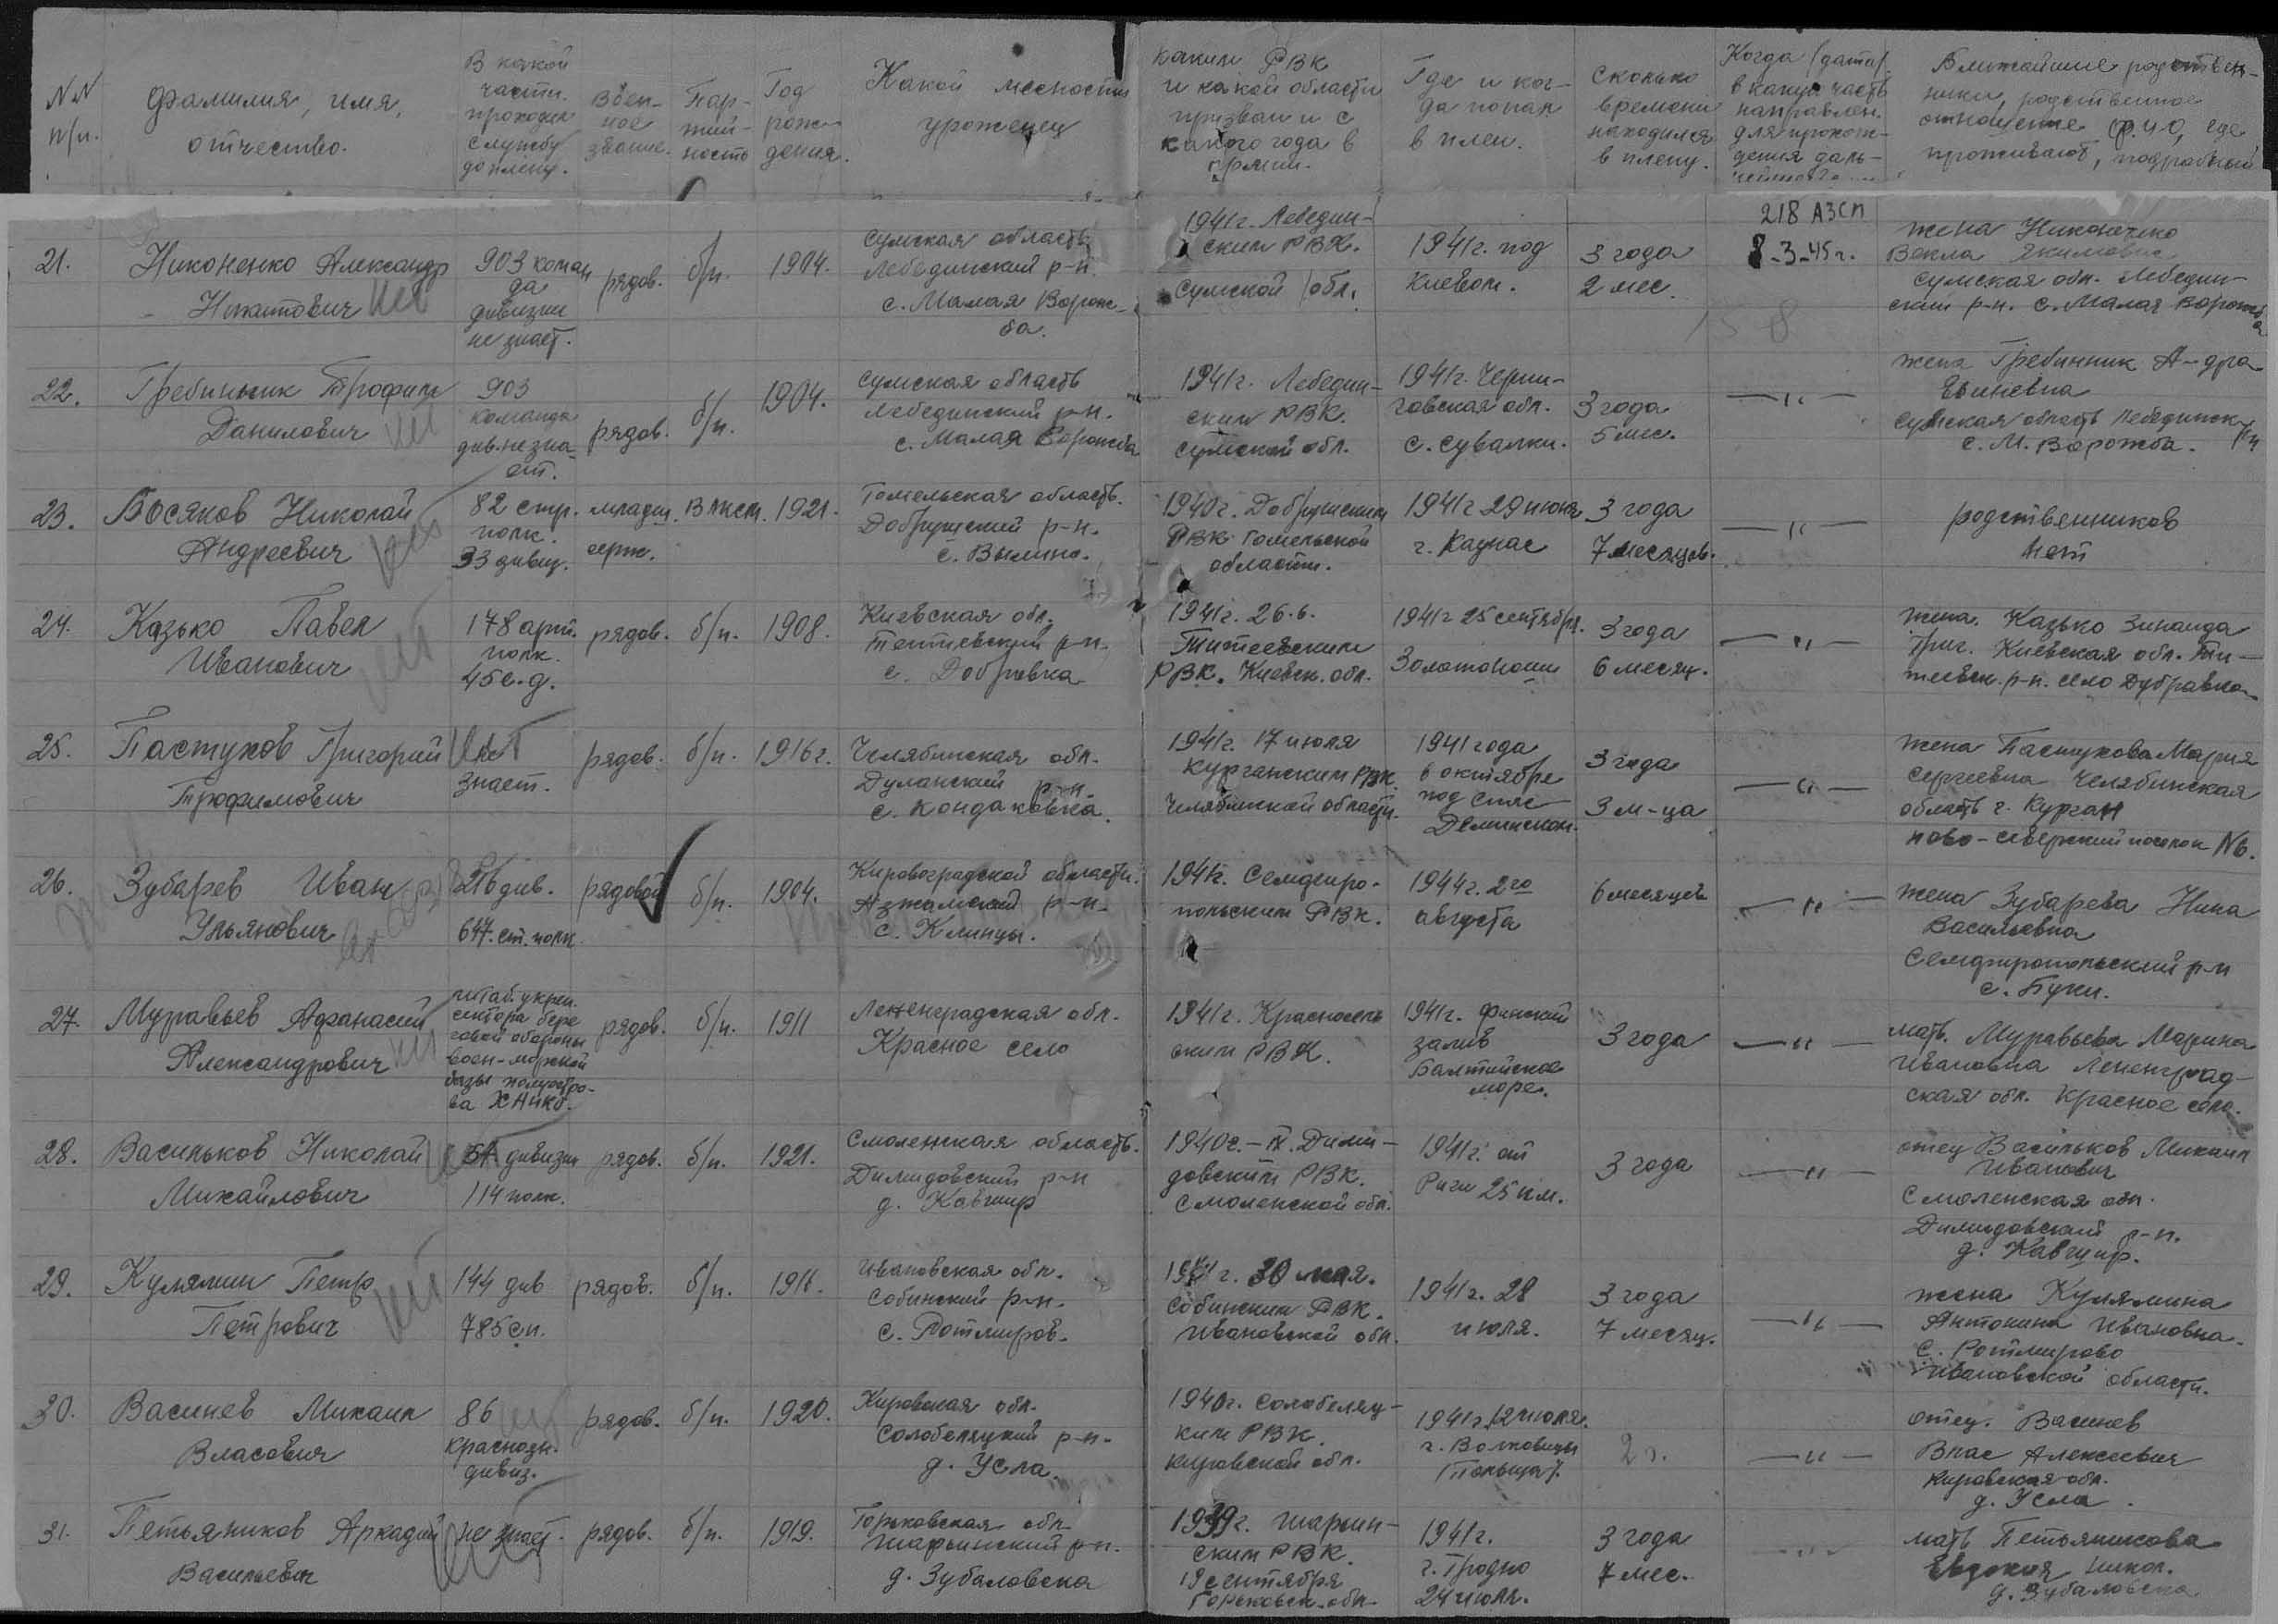 NN п/п.
Фамилия, имя, отчество.
В какой части проходил службу до плену.
Воен-ное звание.
Пар-тий-ность
Год рож-дения.
Какой месности уроженец
Каким РВК и какой области призван и с какого года в армии.
Где и ког-да попал в плен.
Сколько времени находился в плену.
Когда /дата/ в какую часть направлен. для прохож-дения даль-
Ближайшие родствен-ники, родственное отношение Ф.И.О, где проживают, подробный
21.
Никоненко Александр Никитович
903 коман да дивизии не знает.
рядов.
б/п.
1904.
Сумская область Лебединский р-н. с. Малая Ворож-ба.
1941г. Лебедин-ским РВК. Сумской обл.
1941г. под Киевом.
3 года 2 мес.
218 АЗСП 8-3-45г.
жена Никоненко Векла Якимовна Сумская обл. Лебедин-ский р-н. с. Малая Ворожба
22.
Гребинник Трофим Данилович
903 команда див. не зна-ет.
рядов.
б/п.
1904.
Сумская область Лебединский р-н. с. Малая Ворожба
1941г. Лебедин-ским РВК. Сумской обл.
1941г. Черни-говская обл. с. Сувалки.
3 года 5 мес.
—"—
жена Гребинник А-дра Сумская область Лебединск р-н с. М. Ворожба.
23.
Босяков Николай Андреевич
82 стр. полк. 33 дивиз.
младш. серж.
ВЛКСМ.
1921.
Гомельская область. Добрушский р-н. с. Вылино.
1940г. Добрушским РВК Гомельской области.
1941г 29 июня г. Каунас
3 года 7 месяцов.
—"—
родственников нет
24.
Казько Павел Иванович
178 арт. полк. 45 с.д.
рядов.
б/п.
1908.
Киевская обл. Тетиевский р-н. с. Добровка
1941г. 26.6. Титеевским РВК. Киевск. обл.
1941г 25 сентября. Золотоноши
3 года 6 месяц.
—"—
жена. Казько Зинаида Григ. Киевская обл. Ти-тиевск. р-н. село Дубравка
25.
Пастухов Григорий Трофимович
Не знает.
рядов.
б/п.
1916г.
Челябинская обл. р-н. с. Кондаковка.
1941г. 17 июля Курганским РВК. Челябинской области.
1941 года в октябре под Спас-Деминском.
3 года 3 м-ца
—"—
жена Пастухова Мария Сергеевна Челябинская область г. Курган ново-северский поселок N6.
26.
Зубарев Иван Ульянович
216 див. 647 ст. полк
рядовой
б/п.
1904.
Кировоградской области. р-н. с. Клинцы.
1941г. Семферо-польским РВК.
1944г. 2го августа
6 месяцев
—"—
жена Зубарева Нина Васильевна Семферопольский р-н с. Буки.
27.
Муравьев Афанасий Александрович
штаб. укреп. сектора бере говой обороны воен-морской базы полуостро-ва Ханко.
рядов.
б/п.
1911
Ленинградская обл. Красное село
1941г. Красносель ским РВК.
1941г. финский залив Балтийское море.
3 года
—"—
мать. Муравьева Марина Ивановна Ленинград-ская обл. Красное село.
28.
Васильков Николай Михайлович
дивизии 114 полк.
рядов.
б/п.
1921.
Смоленская область. Димидовский р-н д. Кавшир
1940г.-IX. Дими-довским РВК. Смоленской обл.
1941г. от Риги 25 км.
3 года
—"—
отец Васильков Михаил Иванович Смоленская обл. Димидовский р-н.
29.
Кулямин Петр Петрович
144 див 785 сп.
рядов.
б/п.
1916.
Ивановская обл. Собинский р-н. с. Ротмиров.
1941г. 30 мая. Собинским РВК. Ивановской обл.
1941г. 28 июля.
3 года 7 месяц.
—"—
жена Кулямина Антонина Ивановна. с. Ротмирово Ивановской области.
30.
Васинев Михаил Власович
86 краснозн. дивиз.
рядов.
б/п.
1920.
Кировская обл. Солобеляцкий р-н. д. Усла.
1940г. Солобеляц-ким РВК. Кировской обл.
1941г. 12 июля. г. Волковицы /Польша/.
2 г.
—"—
отец. Васинев Влас Алексеевич Кировская обл. д. Усла.
31.
Петьяников Аркадий Васильевич
не знает.
рядов.
б/п.
1919.
Горьковская обл. Шарьинский р-н. д. Зубаловска
1939г. Шарьин-ским РВК. 19 сентября Горьковск. обл.
1941г. г. Гродно 24 июля.
3 года 7 мес.
мать Петьяникова Евдокия Никол. д. Зубаловска